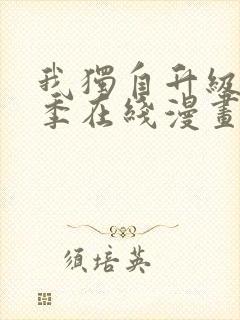 我獨自升級
季在綫漫畫
須培英